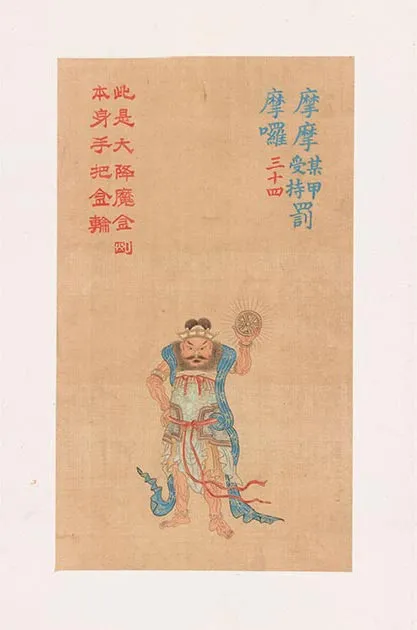 摩摩某甲受持罰
摩囉三十四
此是大降魔金剛
本身手把金輪